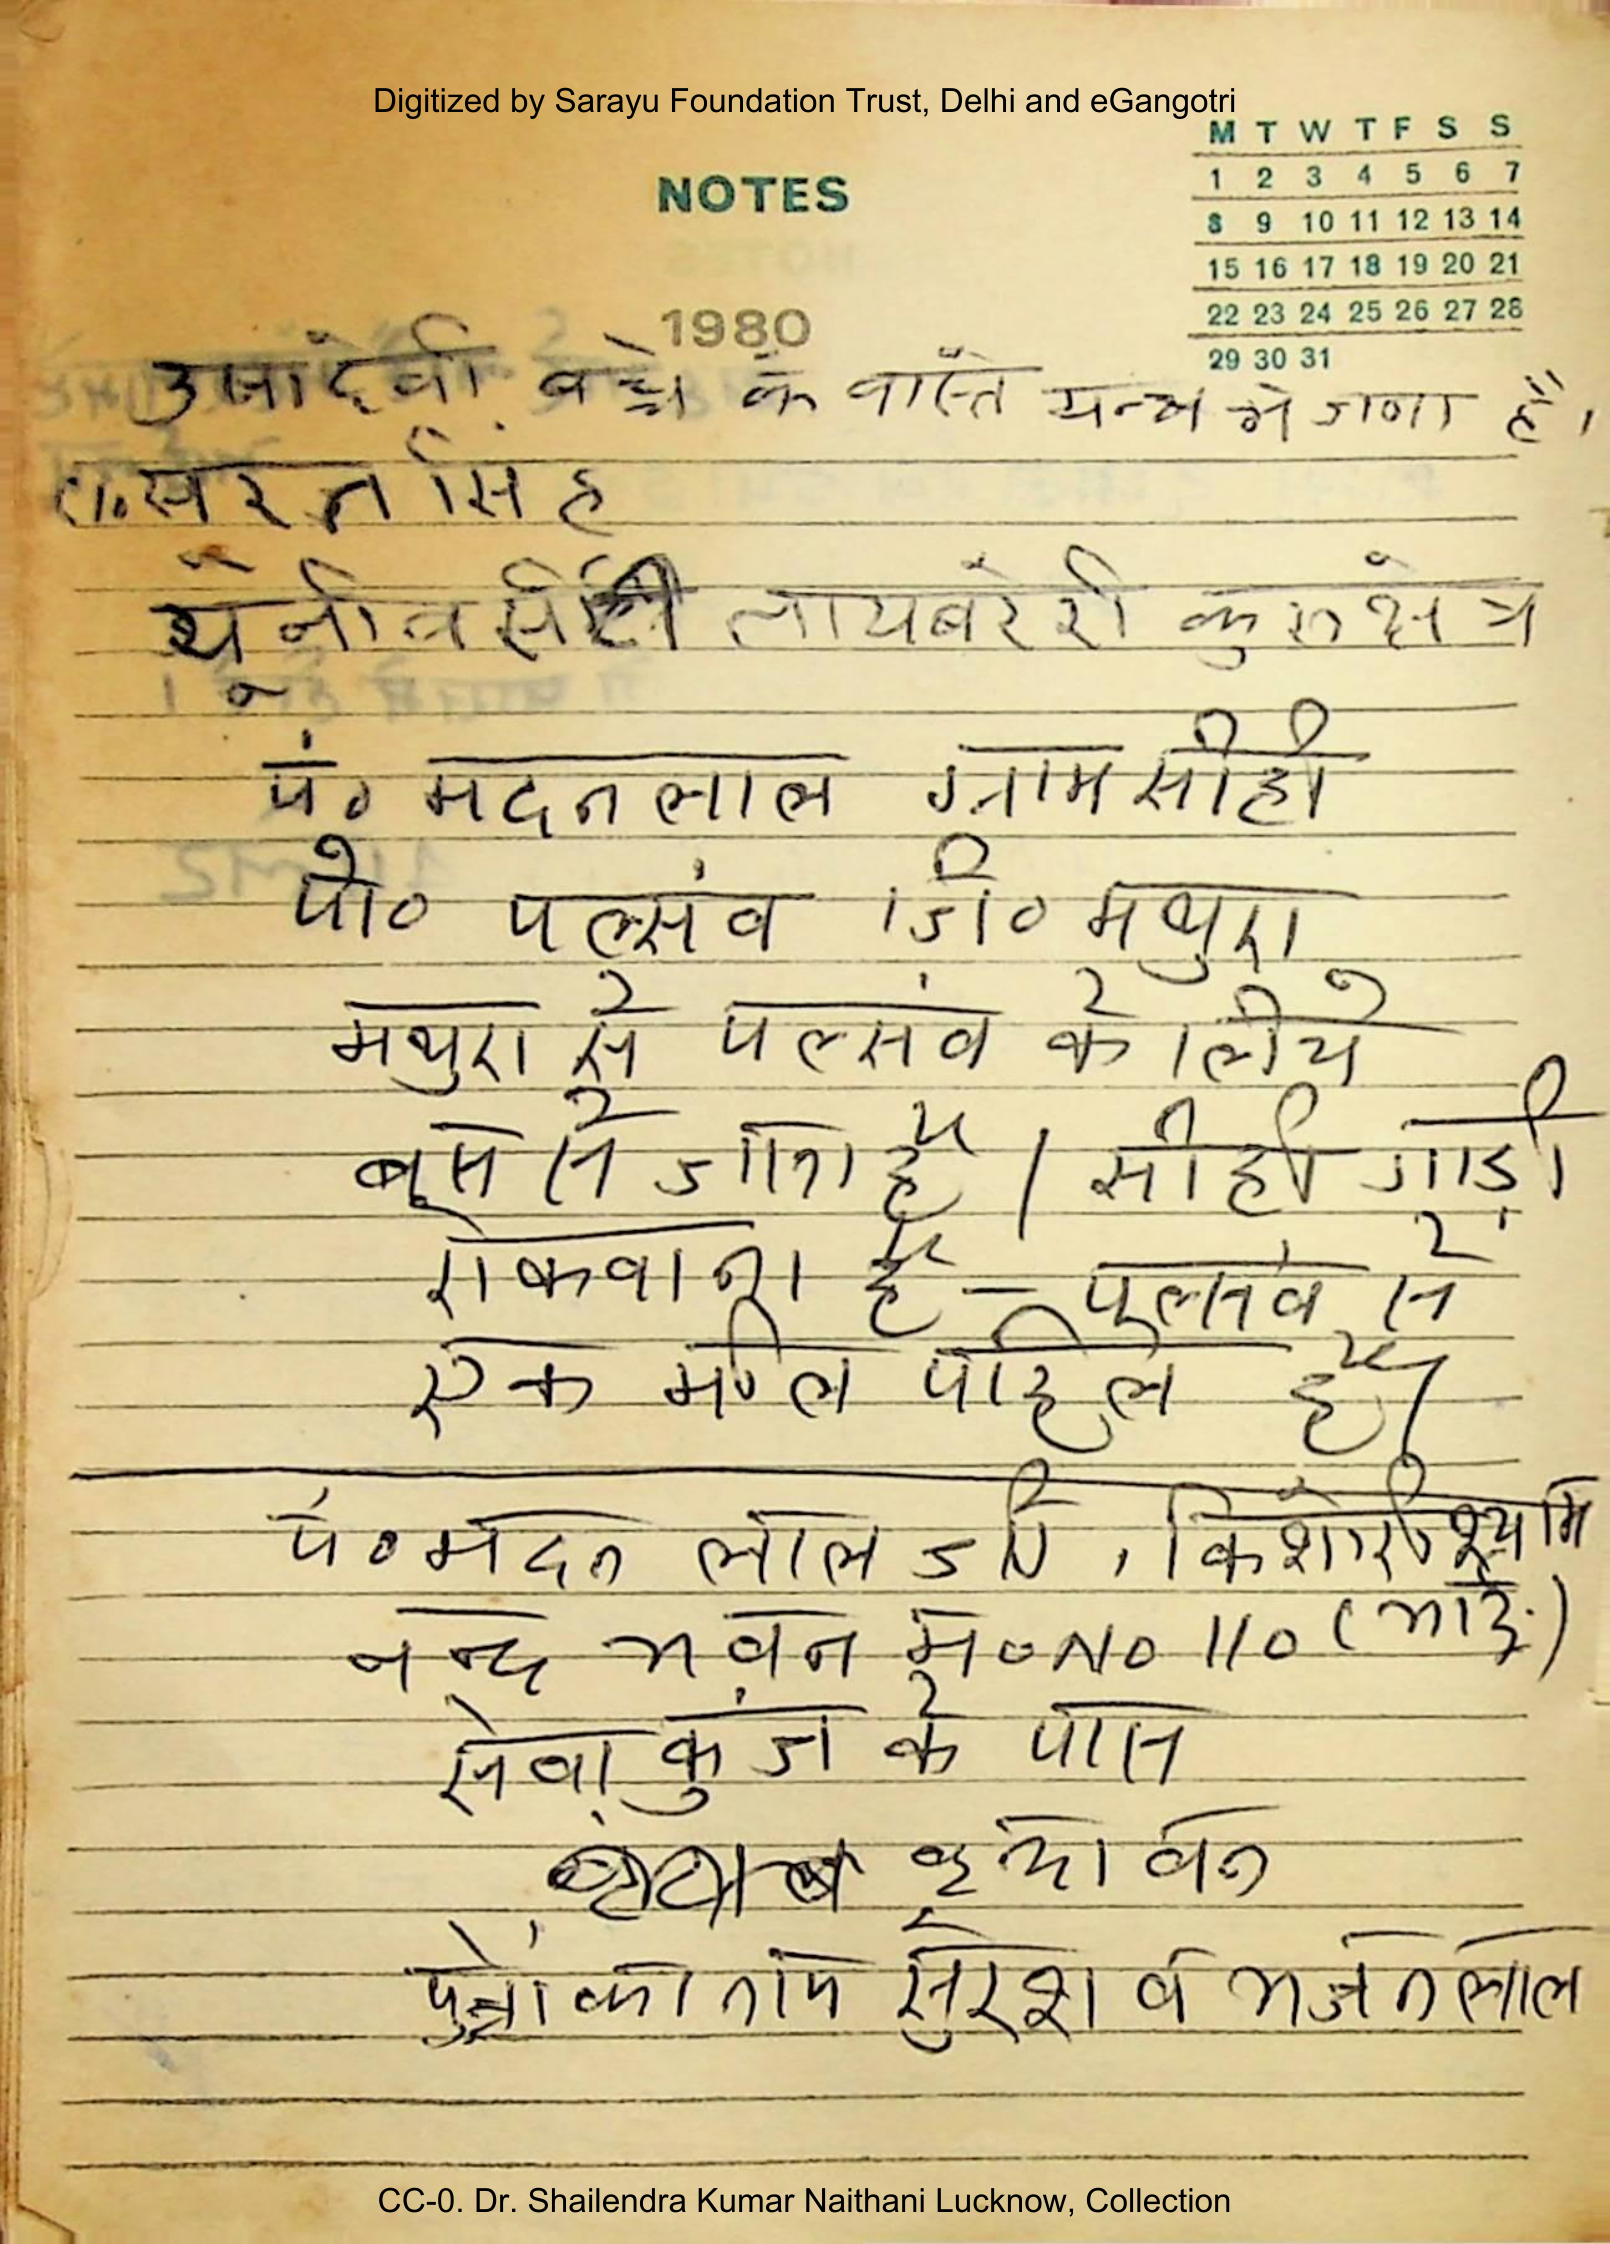 Digitized by Sarayu Foundation Trust, Delhi and eGangotri
M T W T F S S
1 2 3 4 5 6 7
NOTES
8 9 10 11 12 13 14
15 16 17 18 19 20 21
22 23 24 25 26 27 28
1980
29 30 31
के वास्ते यन्त्र मे है।
सिंह
लायबरेरी कुरुक्षेत्र
पं० मदनलाल ग्राम सीही
पो० पल्संव जि० मथुरा
मथुरा से पल्संव के लीये
बस से जाना है। सीही गाड़ी
रोकवाना है - पल्सवं से
एक मील पहिले है।
पं० मदन लाल जी, किशोरी श्याम
नन्द भवन म० No 110 (भाई)
सेवा कुंज के पास
वृन्दावन
पुत्रो का नाम सुरेश व भजनलाल
CC-0. Dr. Shailendra Kumar Naithani Lucknow, Collection